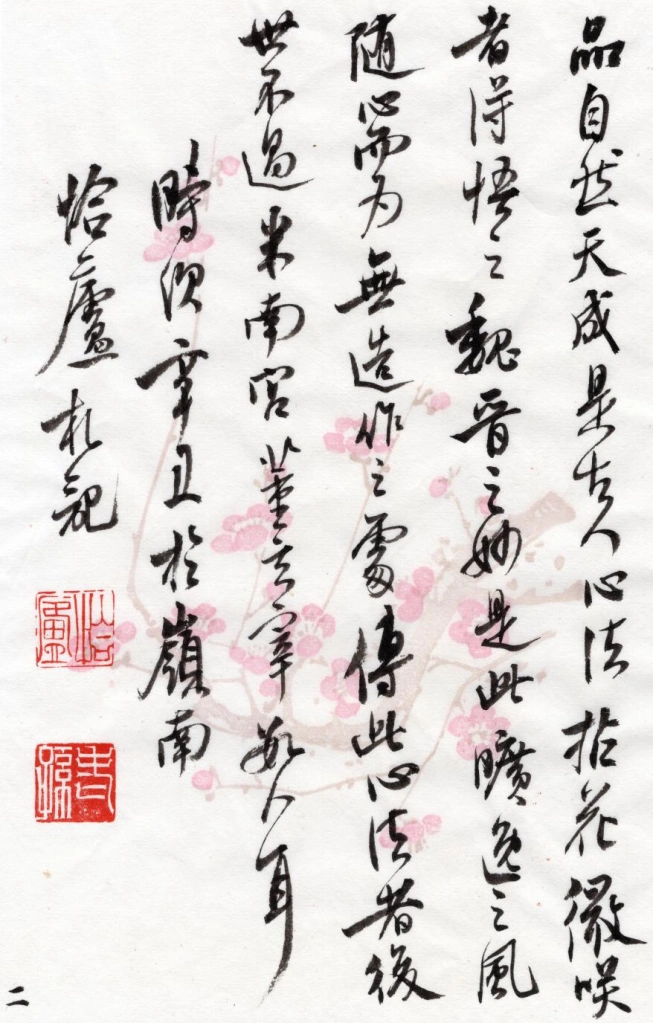 品自然天成是古人心法拈花微咲
者得悟之魏晋之妙是此曠逸之風
随心而为無造作之處傳此心法者後
世不過米南宫董玄宰数人耳
時須辛丑於嶺南
怡廬札記
怡廬
二